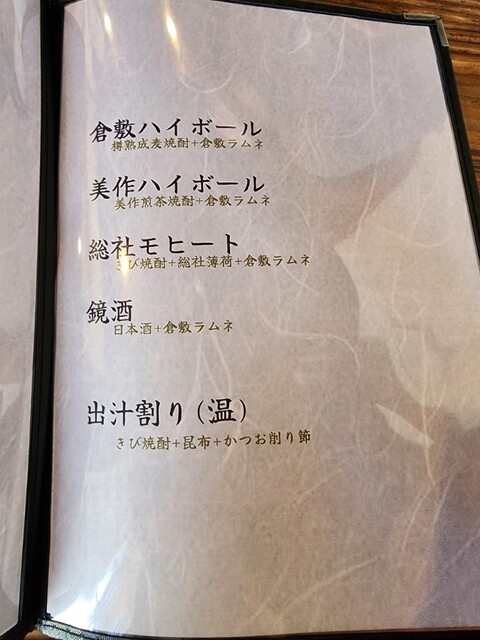 倉敷ハイボール
樽熟成麦焼酎+倉敷ラムネ
美作ハイボール
美作煎茶焼酎+倉敷ラムネ
総社モヒート
きび焼酎+総社薄荷+倉敷ラムネ
鏡酒
日本酒+倉敷ラムネ
出汁割り(温)
きび焼酎+昆布+かつお削り節